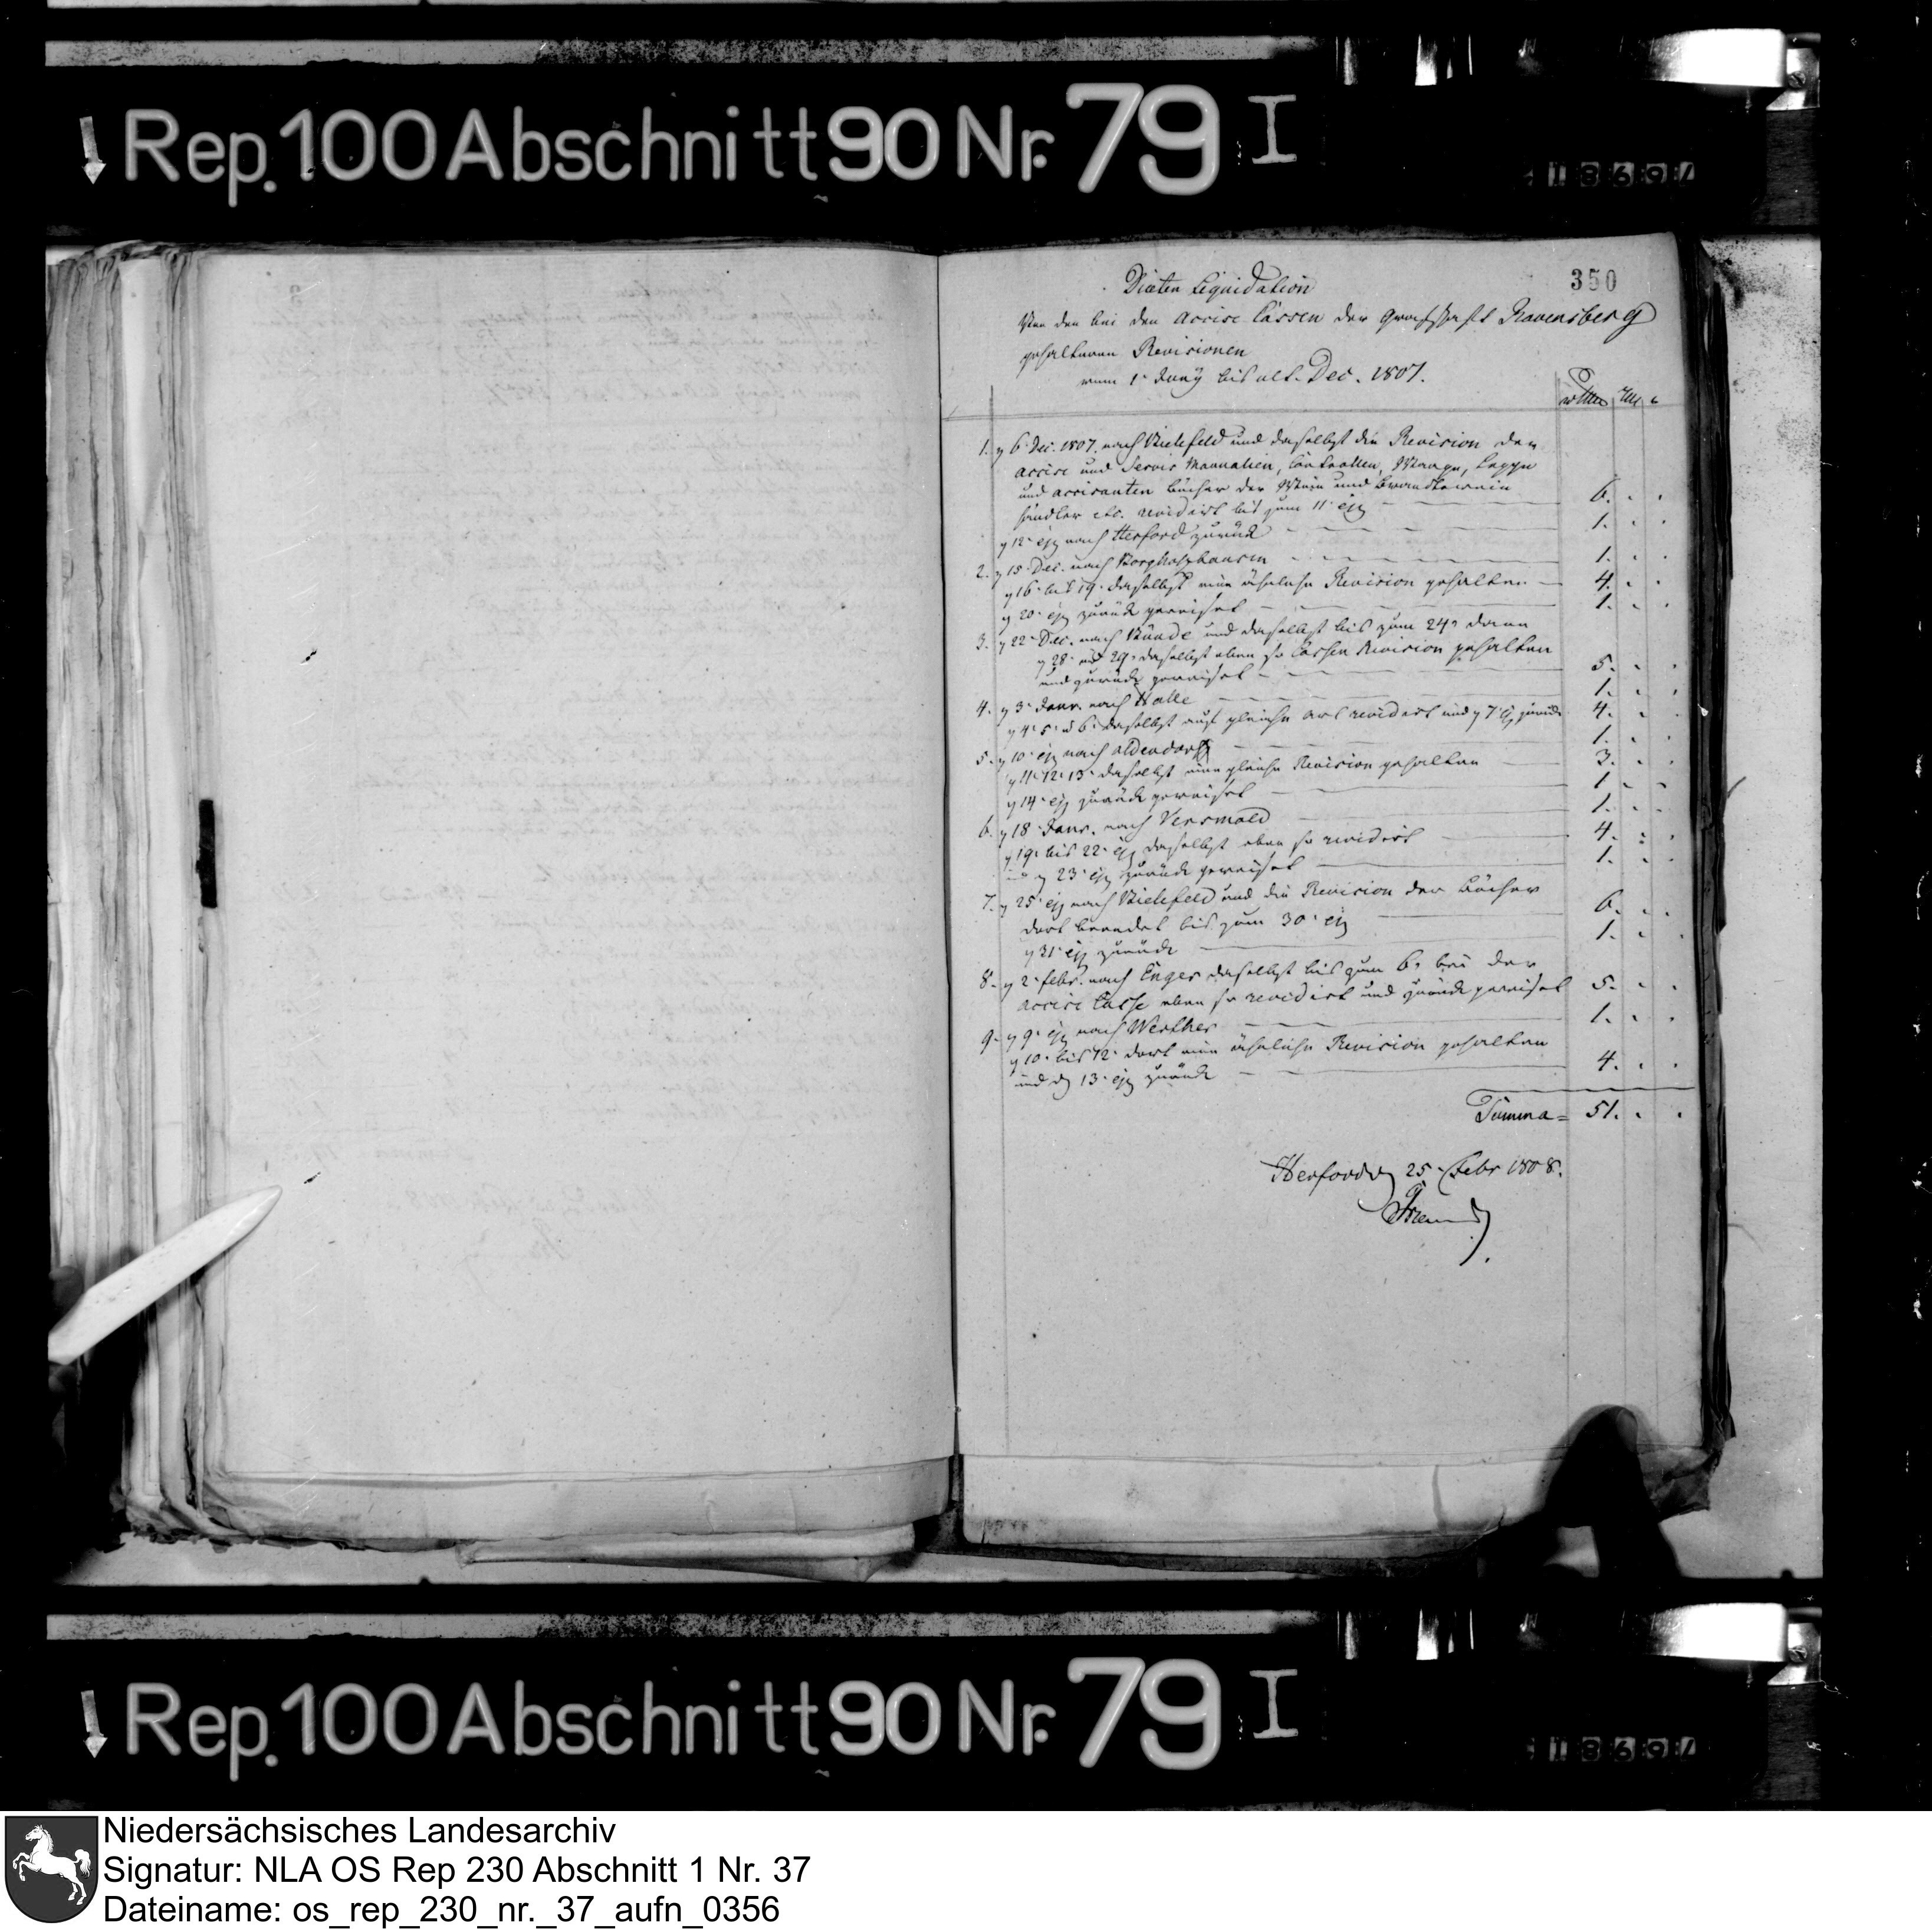 Rep. 100 Abschnitt 90 Nr. 79 I
1869
350
Diaeten Liquidation
Von den bei den Accise Cassen der Grafschaft Ravensberg
gehaltenen Revisionen
vom 1. Juny bis ult. Dec. 1807.
1. d 6. Dec. 1807. nach Bielefeld und daselbst die Revision der
Accise und Servis Manualien, Controllen, Waage,
und Accisanten Bücher der Wein und Brandtewein
händler etc. revidirt bis zum 11. ej 6. . .
d 12. ej nach Herford zurück 1. . .
2. d 15. Dec. nach Borgholzhausen 1. . .
d 16. bis 19. daselbst eine ähnliche Revision gehalten 4. . .
d 20. ej zurück gereiset 1. . .
3. d 22. Dec. nach Bünde und daselbst bis zum 24. dann
d 28. und 29. daselbst eben so Cassen Revision gehalten
und zurück gereiset 5. . .
4. d 3. Janr. nach Halle 1. . .
d 4. 5. u 6. daselbst auf gleiche Art revidirt und d 7. ej zurück 4. . .
5. d 10. ej nach Oldendorff 1. . .
d 11. 12. 13. daselbst eine gleiche Revision gehalten 3. . .
d 14. ej zurück gereiset 1. . .
6. d 18. Janr. nach Versmold 1. . .
d 19. bis 22. ej daselbst eben so revidirt 4. . .
und d 23. ej zurück gereiset 1. . .
7. d 25. ej nach Bielefeld und die Revision der Bücher
dort beendet bis zum 30. ej 6. . .
d 31. ej zurück 1. . .
8. d 2. Febr. nach Enger daselbst bis zum 6. bei der
Accise Casse eben so revidirt und zurück gereiset 5. . .
9. d 9. ej nach Werther 1. . .
d 10. bis 12. dort eine ähnliche Revision gehalten
und d 13. ej zurück 4. . .
Summa = 51. . .
Herford d 25. Febr 1808.
Rep. 100 Abschnitt 90 Nr. 79 I
1869
Niedersächsisches Landesarchiv
Signatur: NLA OS Rep 230 Abschnitt 1 Nr. 37
Dateiname: os_rep_230_nr._37_aufn_0356